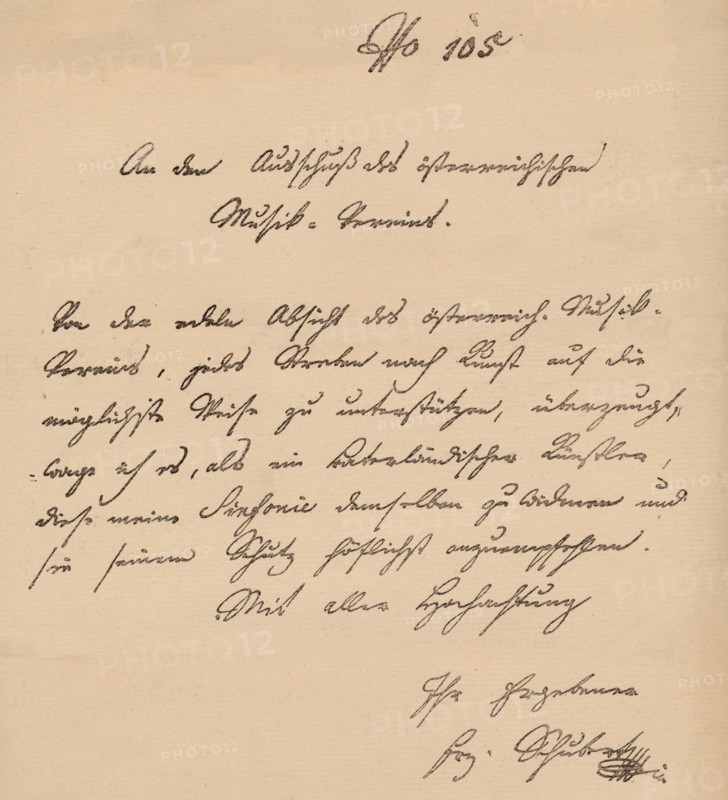 No 105
An den Ausschuß des österreichischen
Musik-Vereins.
Von der edeln Absicht des österreich. Musik-
Vereins, jedes Streben nach Kunst auf die
möglichste Weise zu unterstützen, überzeugt,
wage ich es, als ein vaterländischer Künstler,
diese meine Sinfonie demselben zu widmen und
sie seinem Schutz höflichst anzuempfehlen.
Mit aller Hochachtung
Ihr Ergebener
Frz. Schubert
PHOTO12